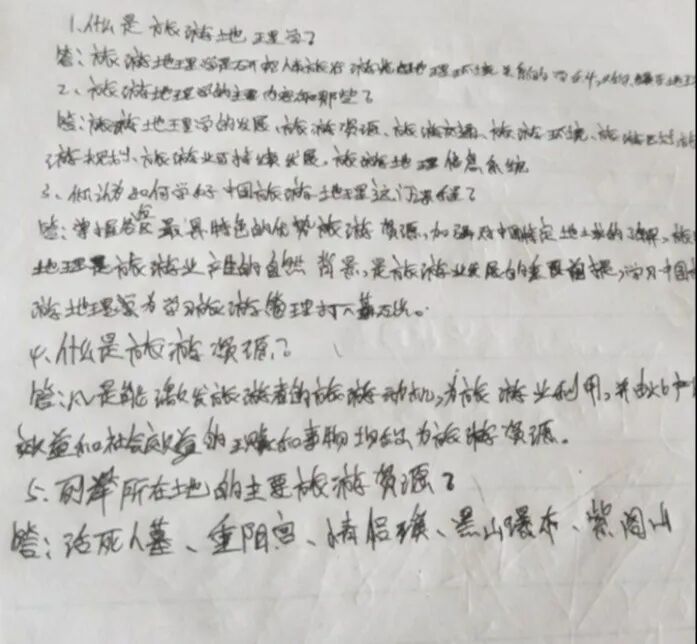 1.什么是旅游地理学?
答:旅游地理学是研究人类旅行游览与地理环境关系的
2、旅游地理学的主要内容有哪些?
答:旅游地理学的发展、旅游资源、旅游交通、旅游环境、旅游区划、
游规划、旅游业可持续发展、旅游地理信息系统
3、你认为如何学好中国旅游地理这门课程?
答:掌握各区最具特色的优势旅游资源,加强对中国特定地域的了解,旅
地理是旅游业产生的自然背景,是旅游业发展的重要前提,学习中国
游地理要为学习旅游管理打下基础。
4.什么是旅游资源?
答:凡是能激发旅游者的旅游动机,为旅游业利用,并由此产
效益和社会效益的现象和事物均称为旅游资源。
5.列举所在地的主要旅游资源?
答:活死人墓、重阳宫、情侣瀑、黑山瀑布、紫阁山